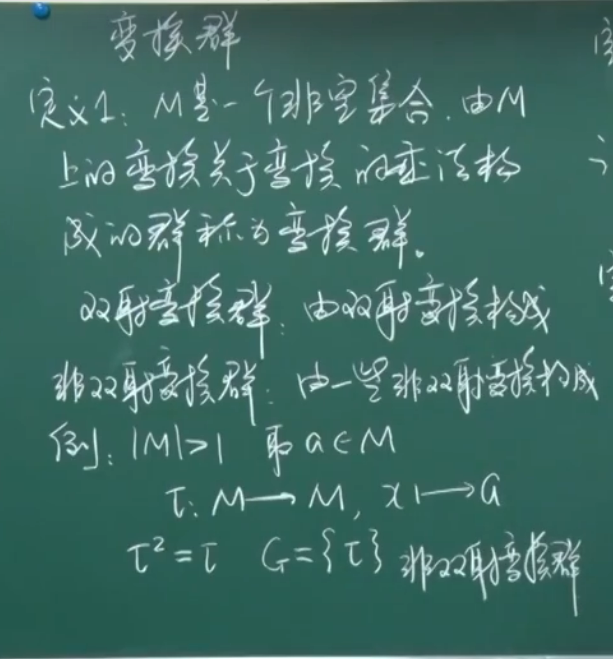 变换群
定义1: M是一个非空集合.由M
上的变换关于变换的乘法构
成的群称为变换群。
双射变换群: 由双射变换构成
非双射变换群: 由一些非双射变换构成
例: |M|>1 取a∈M
τ: M⟶M, x⟼a
τ²=τ G={τ} 非双射变换群